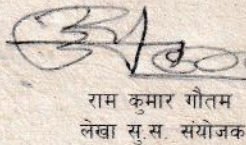 राम कुमार गौतम
लेखा सु.स. संयोजक